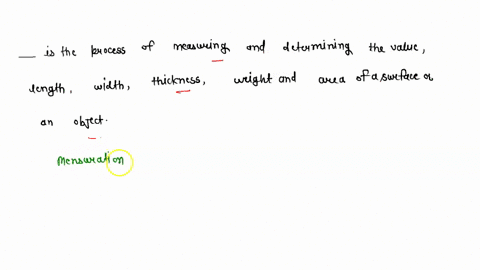 __ is the process of measuring and determining the value,
length, width, thickness, weight and area of a surface or
an object.
Mensuration